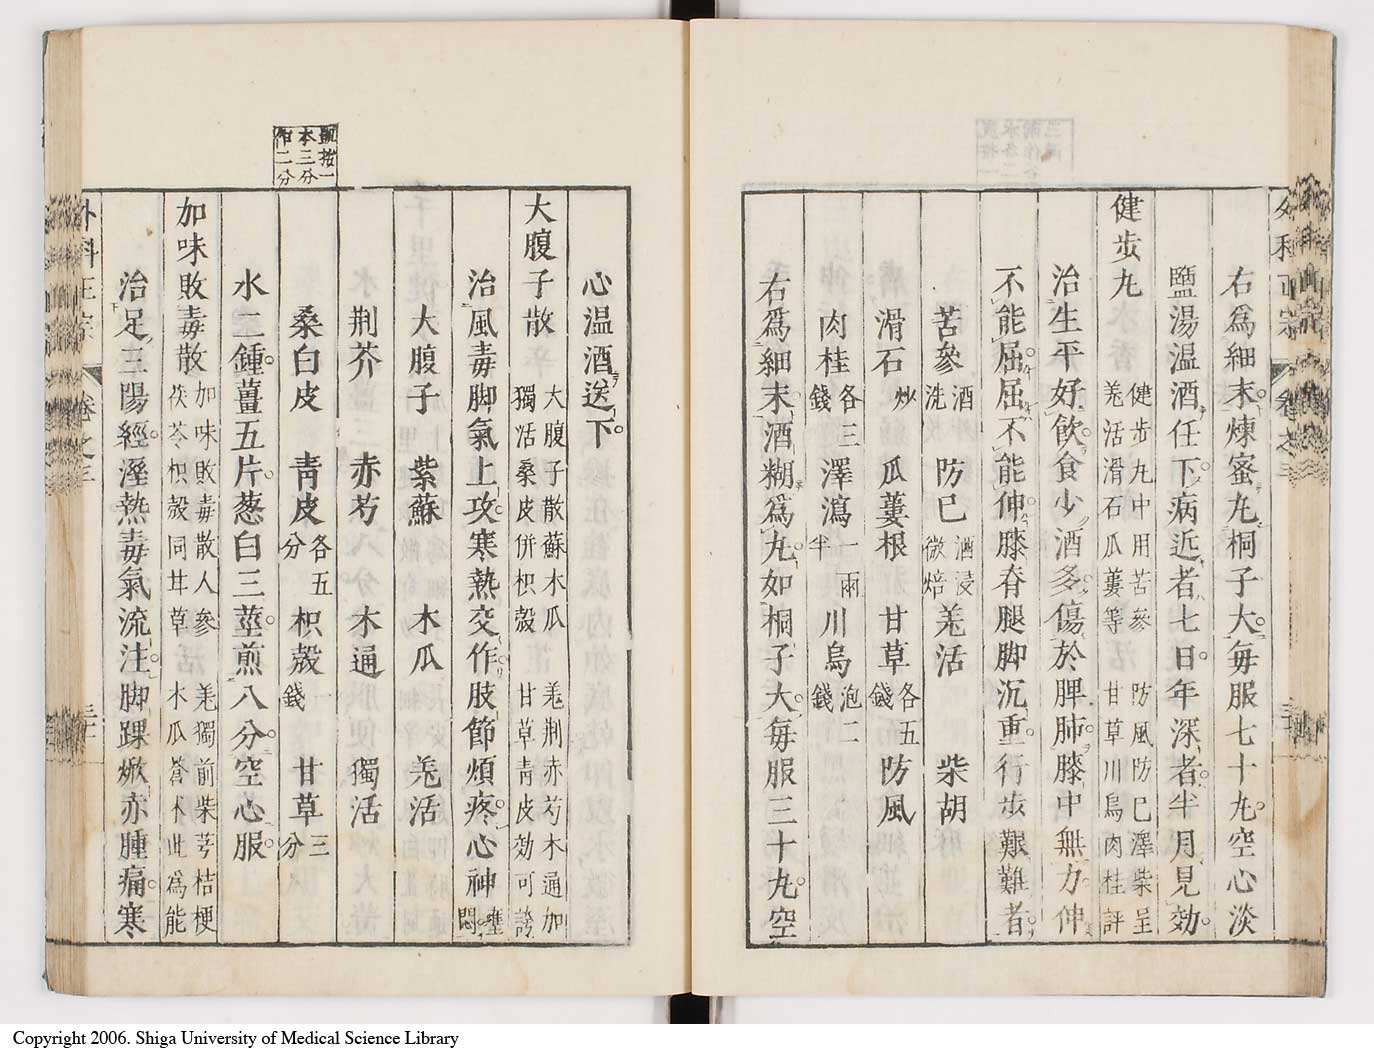 右爲細末煉蜜丸桐子大每服七十丸空心淡
鹽湯温酒任下病近者七日年深者半月見効
健步丸 健步丸中用苦參 防風防巳澤柴呈
羌活滑石瓜蔞等 甘草川烏肉桂評
治生平好飲食少酒多傷於脾肺膝中無力伸
不能屈屈不能伸膝脊腿脚沉重行步艱難者
苦參酒洗 防巳酒浸微焙 羌活 柴胡
滑石炒 瓜蔞根 甘草各五錢 防風
肉桂各三錢 澤瀉一兩半 川烏泡二錢
右爲細末酒糊爲丸如桐子大每服三十丸空
外科正宗 卷之三
心温酒送下
大腹子散 大腹子散蘇木瓜 羌荆赤芍木通加
獨活桑皮併枳殼 甘草青皮効可誇
治風毒脚氣上攻寒熱交作肢節煩疼心神壅悶
大腹子 紫蘇 木瓜 羌活
荆芥 赤芍 木通 獨活
桑白皮 青皮各五分 枳殼一錢 甘草三分
本三分
作二分
水二鍾薑五片葱白三莖煎八分空心服
加味敗毒散 加味敗毒散人參 羌獨前柴芎桔梗
茯苓枳殼同甘草 木瓜蒼朮此爲能
治足三陽經溼熱毒氣流注脚踝焮赤腫痛寒
外科正宗 卷之三
Copyright 2006. Shiga University of Medical Science Library